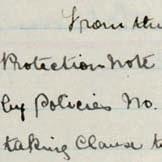 From the
Protection Note
by Policies No.
taking Clause t